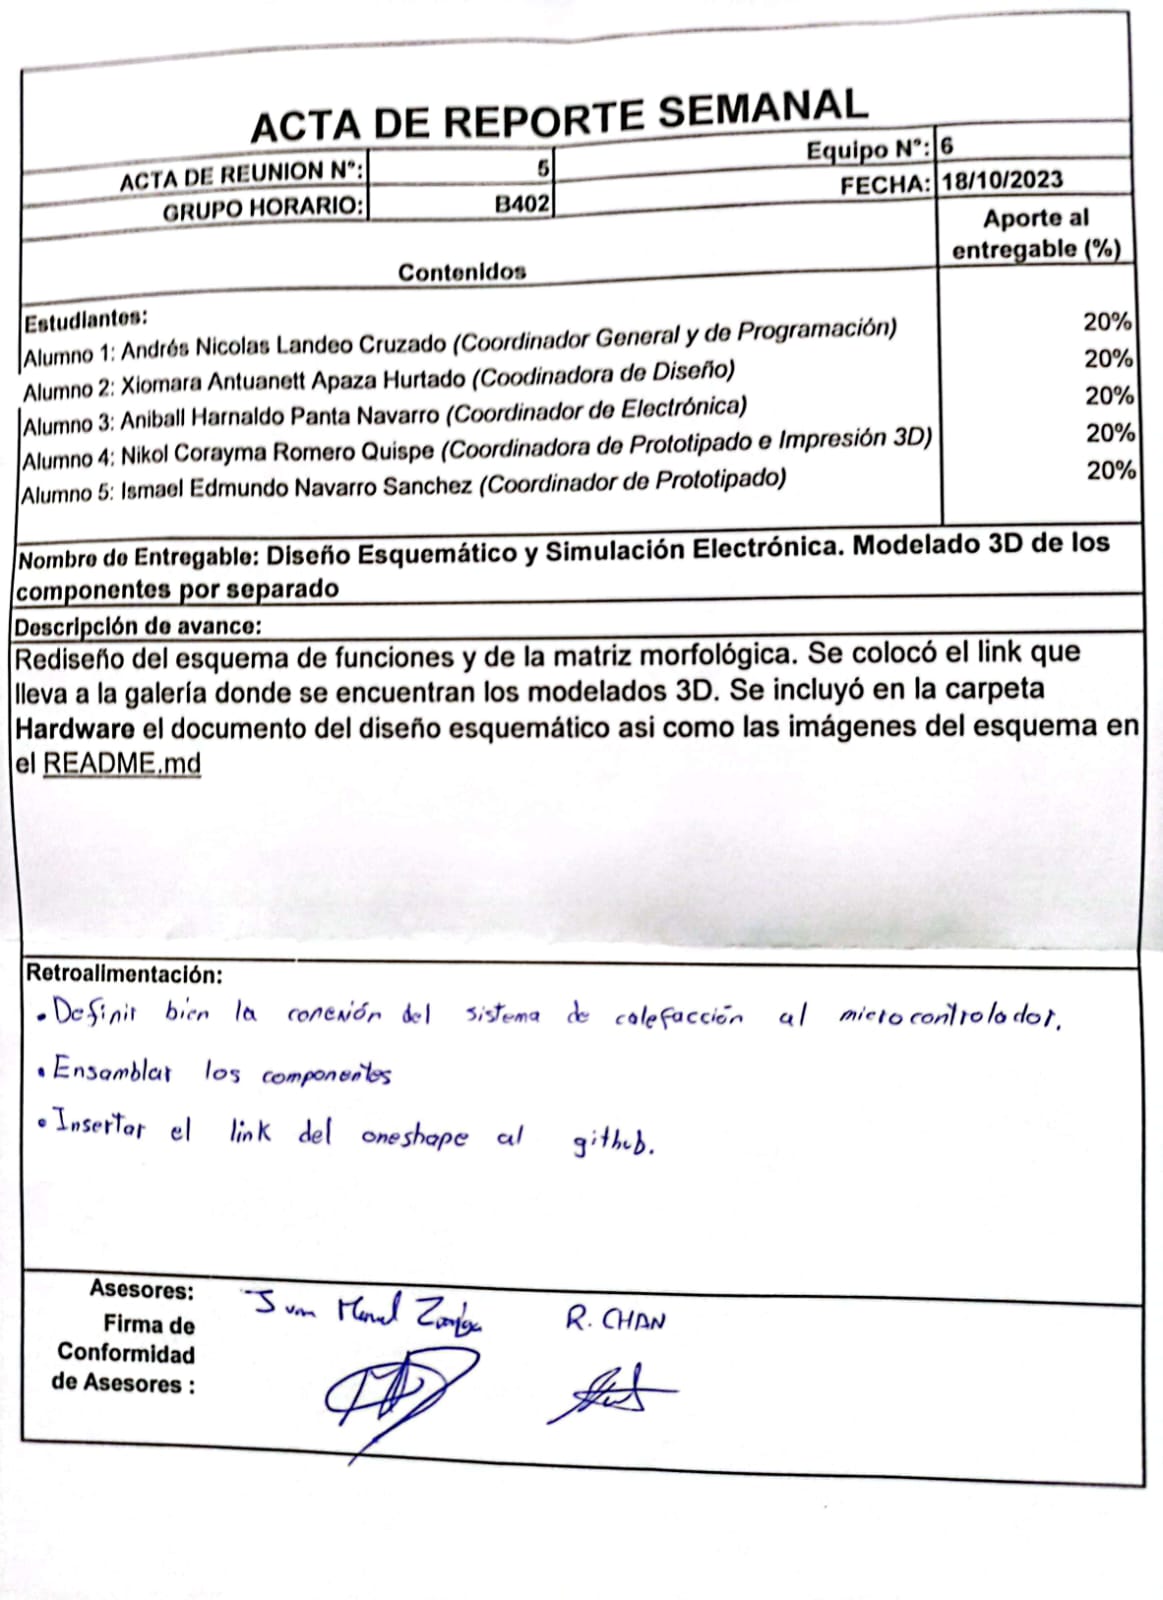 ACTA DE REPORTE SEMANAL
ACTA DE REUNION N°: 5 Equipo N°: 6
GRUPO HORARIO: B402 FECHA: 18/10/2023
Contenidos
Aporte al
entregable (%)
Estudiantes:
Alumno 1: Andrés Nicolas Landeo Cruzado (Coordinador General y de Programación) 20%
Alumno 2: Xiomara Antuanett Apaza Hurtado (Coodinadora de Diseño) 20%
Alumno 3: Aniball Harnaldo Panta Navarro (Coordinador de Electrónica) 20%
Alumno 4: Nikol Corayma Romero Quispe (Coordinadora de Prototipado e Impresión 3D) 20%
Alumno 5: Ismael Edmundo Navarro Sanchez (Coordinador de Prototipado) 20%
Nombre de Entregable: Diseño Esquemático y Simulación Electrónica. Modelado 3D de los
componentes por separado
Descripción de avance:
Rediseño del esquema de funciones y de la matriz morfológica. Se colocó el link que
lleva a la galería donde se encuentran los modelados 3D. Se incluyó en la carpeta
Hardware el documento del diseño esquemático asi como las imágenes del esquema en
el README.md
Retroalimentación:
• Definir bien la conexión del sistema de calefacción al microcontrolador.
• Ensamblar los componentes
• Insertar el link del oneshape al github.
Asesores: Juan Manuel R. CHAN
Firma de
Conformidad
de Asesores :